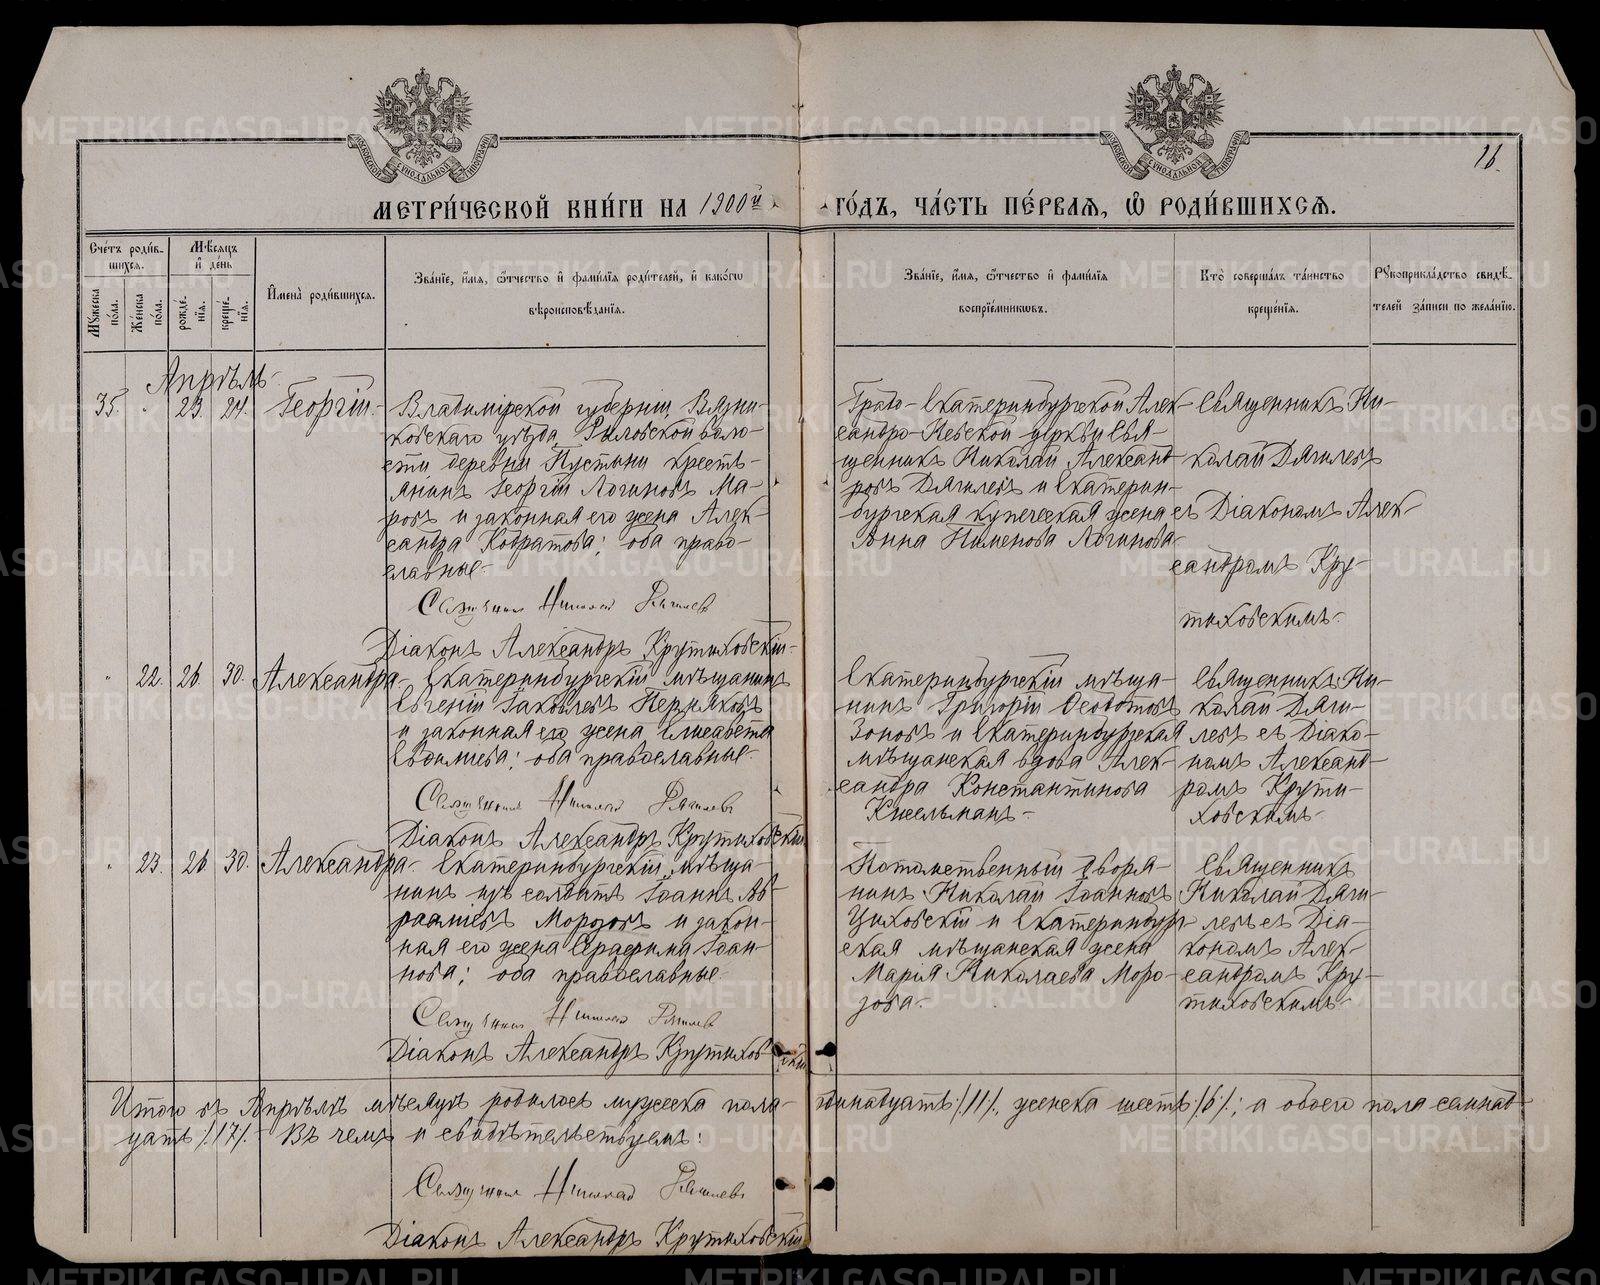 16.
МЕТРИ́ЧЕСКОЙ КНИ́ГИ НА 1900й ГО́ДЪ, ЧА́СТЬ ПЕ́РВАЯ, Ѡ҆ РОДИ́ВШИХСЯ.
Сче́тъ роди́в-
шихся.
Мꙋ́жеска по́ла.
Же́нска по́ла.
Мѣ́сяцъ
и҆ де́нь
рожде́-
нїя.
креще́-
нїя.
И҆мена̀ роди́вшихся.
Зва́нїе, и҆́мя, ѻ҆́тчество и҆ фами́лїя роди́телей, и҆ како́гѡ
вѣроисповѣ́данїя.
Зва́нїе, и҆́мя, ѻ҆́тчество и҆ фами́лїя
воспрїе́мникѡвъ.
Кто̀ соверша́лъ та́инство
креще́нїя.
Рꙋкоприкла́дство свидѣ́-
телей за́писи по жела́нїю.
Апрѣль
35. " 23. 24. Георгій.
Владимірской губерніи, Вязни-
ковскаго уѣзда, Рыловской воло-
сти деревни Пустыни кресть-
янинъ Георгій Логиновъ Ма-
ровъ и законная его жена Алек-
сандра Кодратова; оба право-
славные.
Священникъ Николай Дягилевъ
Діаконъ Александръ Крутиховскій.
Градо-Екатеринбургской Алек-
сандро-Невской церкви Свя-
щенникъ Николай Александ-
ровъ Дягилевъ и Екатерин-
бургская купеческая жена
Анна Пименова Логинова.
Священникъ Ни-
колай Дягилевъ
съ Діакономъ Алек-
сандромъ Кру-
тиховскимъ.
" 22. 26. 30. Александра.
Екатеринбургскій мѣщанинъ
Евгеній Іаковлевъ Перняковъ
и законная его жена Елисавета
Евдокіева; оба православные.
Священникъ Николай Дягилевъ
Діаконъ Александръ Крутиховскій
Екатеринбургскій мѣща-
нинъ Григорій Ѳеодотовъ
Зоновъ и Екатеринбургская
мѣщанская вдова Алек-
сандра Константинова
Кисельманъ.
Священникъ Ни-
колай Дяги-
левъ съ Діако-
номъ Александ-
ромъ Крути-
ховскимъ.
" 23. 26. 30. Александра.
Екатеринбургскій мѣща-
нинъ изъ солдатъ Іоаннъ Ав-
раамовъ Морозовъ и закон-
ная его жена Серафима Іоан-
нова; оба православные.
Священникъ Николай Дягилевъ
Діаконъ Александръ Крутиховскій
Потомственный дворя-
нинъ Николай Іоанновъ
Циховскій и Екатеринбург-
ская мѣщанская жена
Марія Николаева Моро-
зова.
Священникъ
Николай Дяги-
левъ съ Діа-
кономъ Алек-
сандромъ Кру-
тиховскимъ.
Итого въ Апрѣлѣ мѣсяцѣ родилось мужеска пола одинадцать /11/, женска шесть /6/; а обоего пола семнад-
цать /17/. Въ чемъ и свидѣтельствуемъ:
Священникъ Николай Дягилевъ
Діаконъ Александръ Крутиховскій